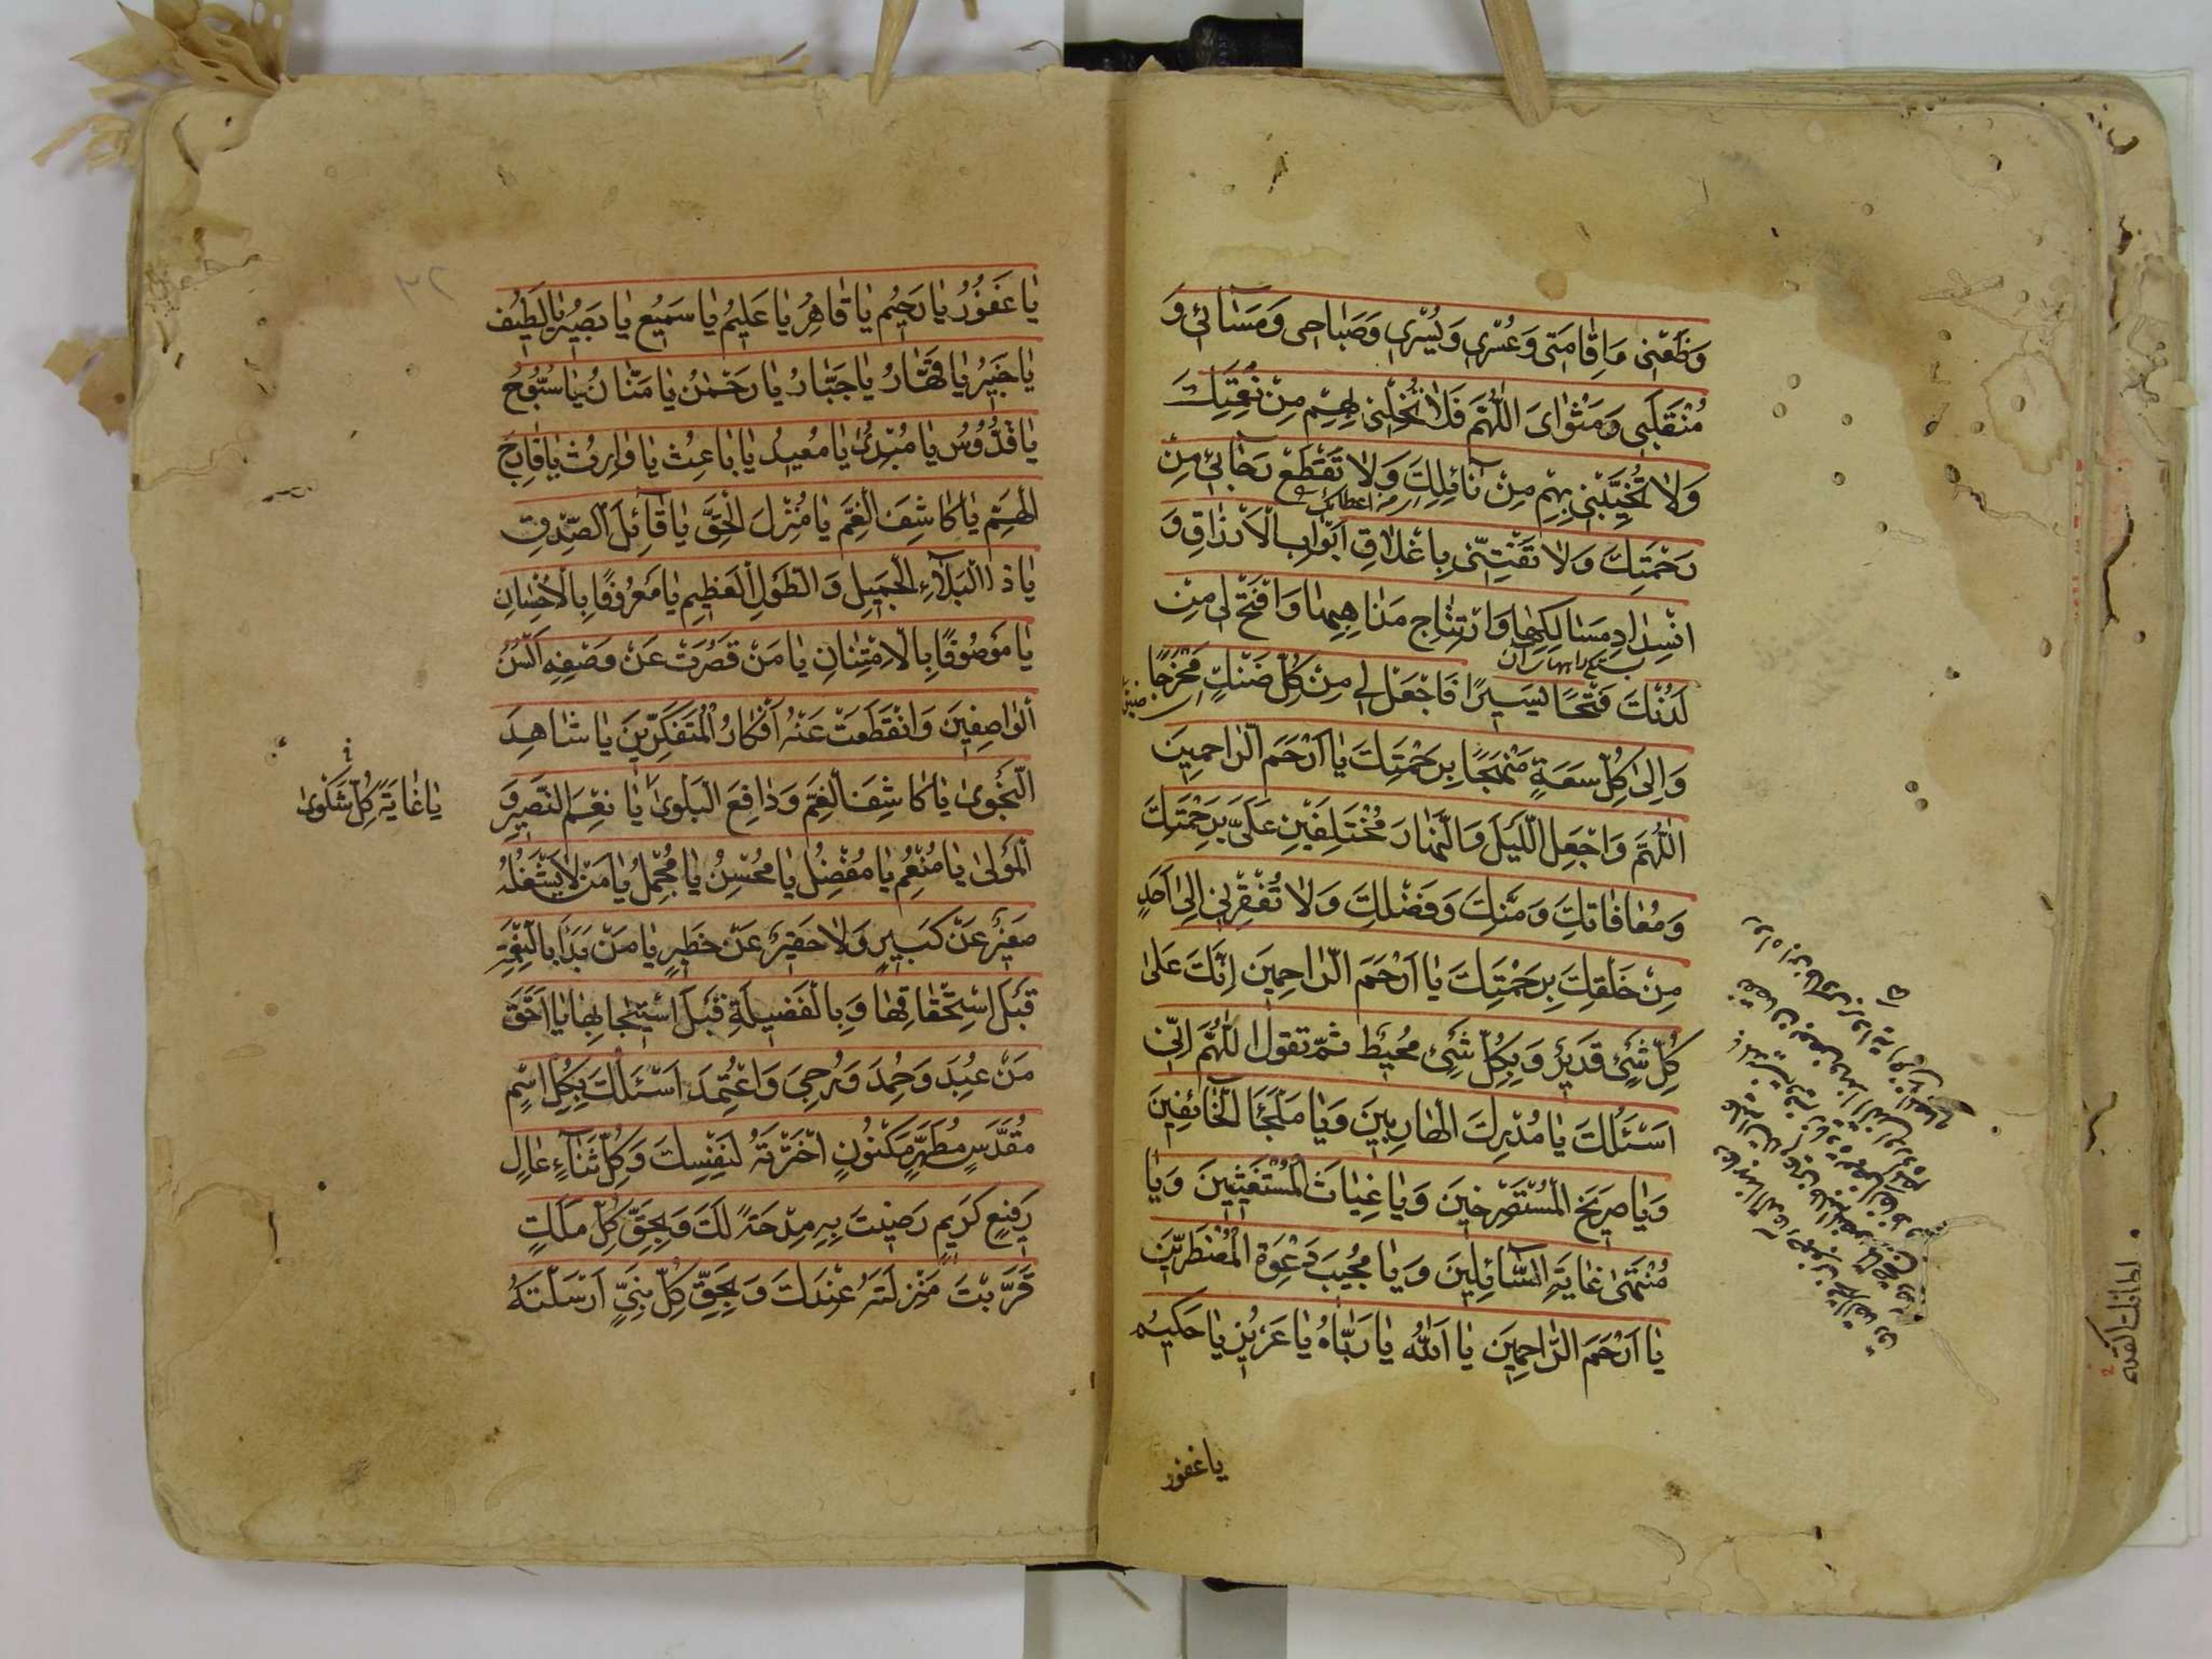 وَظَعْنِى وَاِقٰامَتى وَعُسْرى وَيُسْرى وَصَبٰاحى وَمَسٰآئى وَ
مُنْقَلَبى وَمَثْوٰاىَ اللّٰهُمَّ فَلاٰ تُخْلِنى بِهِمْ مِنْ نِعْمَتِكَ
وَلاٰ تُخَيِّبْنى بِهِمْ مِنْ نٰائِلِكَ وَلاٰ تَقْطَعْ رَجٰائى مِنْ
من اعطائك
رَحْمَتِكَ وَلاٰ تَفْتِنّى بِاِغْلاٰقِ اَبْوٰابِ الْاَرْزٰاقِ وَ
انْسِدٰادِ مَسٰالِكِهٰا وَارْتِتٰاجِ مَذٰاهِبِهٰا وَافْتَحْ لى مِنْ
لَدُنْكَ فَتْحًا يَسيرًا فَاجْعَلْ لى مِنْ كُلِّ ضَنْكٍ مَخْرَجًا
وَاِلىٰ كُلِّ سَعَةٍ مَنْهَجًا بِرَحْمَتِكَ يٰا اَرْحَمَ الرّٰاحِمينَ
اللّٰهُمَّ وَاجْعَلِ اللَّيْلَ وَالنَّهٰارَ مُخْتَلِفَيْنِ عَلَىَّ بِرَحْمَتِكَ
وَمُعٰافٰاتِكَ وَمَنِّكَ وَفَضْلِكَ وَلاٰ تُفْقِرْنى اِلىٰ اَحَدٍ
مِنْ خَلْقِكَ بِرَحْمَتِكَ يٰا اَرْحَمَ الرّٰاحِمينَ اِنَّكَ عَلىٰ
كُلِّ شَئٍ قَديرٌ وَبِكُلِّ شَئٍ مُحيطٌ ثمّ تقول اَللّٰهُمَّ اِنّى
اَسْئَلُكَ يٰا مُدْرِكَ الْهٰارِبينَ وَيٰا مَلْجَأَ الْخٰائِفينَ
وَيٰا صَريخَ الْمُسْتَصْرِخينَ وَيٰا غِيٰاثَ الْمُسْتَغيثينَ وَيٰا
مُنْتَهىٰ غٰايَةِ السّٰآئِلينَ وَيٰا مُجيبَ دَعْوَةِ الْمُضْطَرّينَ
يٰا اَرْحَمَ الرّٰاحِمينَ يٰا اَللّٰهُ يٰا رَبّٰاهُ يٰا عَزيزُ يٰا حَكيمُ
يا غفور
يٰا غَفُورُ يٰا رَحيمُ يٰا قٰاهِرُ يٰا عَليمُ يٰا سَميعُ يٰا بَصيرُ يٰا لَطيفُ
يٰا خَبيرُ يٰا قَهّٰارُ يٰا جَبّٰارُ يٰا رَحْمٰنُ يٰا مَنّٰانُ يٰا سُبُّوحُ
يٰا قُدُّوسُ يٰا مُبْدِئُ يٰا مُعيدُ يٰا بٰاعِثُ يٰا وٰارِثُ يٰا فٰارِجَ
الْهَمِّ يٰا كٰاشِفَ الْغَمِّ يٰا مُنْزِلَ الْحَقِّ يٰا قٰآئِلَ الصِّدْقِ
يٰا ذَا الْبَلآءِ الْجَميلِ وَالطَّوْلِ الْعَظيمِ يٰا مَعْرُوفًا بِالْاِحْسٰانِ
يٰا مَوْصُوفًا بِالْاِمْتِنٰانِ يٰا مَنْ قَصُرَتْ عَنْ وَصْفِهِ اَلْسُنُ
الْوٰاصِفينَ وَانْقَطَعَتْ عَنْهُ اَفْكٰارُ الْمُتَفَكِّرينَ يٰا شٰاهِدَ
النَّجْوىٰ يٰا كٰاشِفَ الْغَمِّ وَدٰافِعَ الْبَلْوىٰ يٰا نِعْمَ النَّصيرُ وَ
يٰا غٰايَةَ كُلِّ شَكْوىٰ
الْمَوْلىٰ يٰا مُنْعِمُ يٰا مُفْضِلُ يٰا مُحْسِنُ يٰا مُجْمِلُ يٰا مَنْ لاٰ يَشْغَلُهُ
صَغيرٌ عَنْ كَبيرٍ وَلاٰ حَقيرٌ عَنْ خَطيرٍ يٰا مَنْ بَدَأَ بِالنِّعْمَةِ
قَبْلَ اسْتِحْقٰاقِهٰا وَبِالْفَضيلَةِ قَبْلَ اسْتيجٰابِهٰا يٰا اَحَقَّ
مَنْ عُبِدَ وَحُمِدَ وَرُجِىَ وَاعْتُمِدَ اَسْئَلُكَ بِكُلِّ اسْمٍ
مُقَدَّسٍ مُطَهَّرٍ مَكْنُونٍ اخْتَرْتَهُ لِنَفْسِكَ وَكُلِّ ثَنٰآءٍ عٰالٍ
رَفيعٍ كَريمٍ رَضيتَ بِهِ مِدْحَةً لَكَ وَبِحَقِّ كُلِّ مَلَكٍ
قَرَّبْتَ مَنْزِلَتَهُ عِنْدَكَ وَبِحَقِّ كُلِّ نَبِىٍّ اَرْسَلْتَهُ